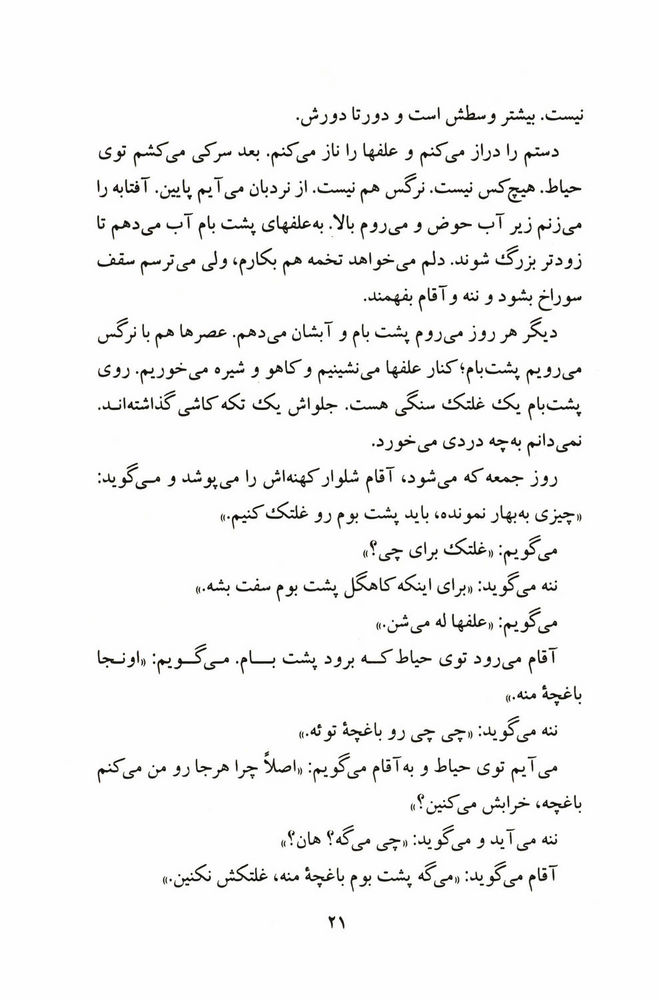 نیست. بیشتر وسطش است و دورتا دورش.
دستم را دراز می‌کنم و علفها را ناز می‌کنم. بعد سرکی می‌کشم توی
حیاط. هیچ‌کس نیست. نرگس هم نیست. از نردبان می‌آیم پایین. آفتابه را
می‌زنم زیر آب حوض و می‌روم بالا. به‌علفهای پشت بام آب می‌دهم تا
زودتر بزرگ شوند. دلم می‌خواهد تخمه هم بکارم، ولی می‌ترسم سقف
سوراخ بشود و ننه و آقام بفهمند.
دیگر هر روز می‌روم پشت بام و آبشان می‌دهم. عصرها هم با نرگس
می‌رویم پشت‌بام؛ کنار علفها می‌نشینیم و کاهو و شیره می‌خوریم. روی
پشت‌بام یک غلتک سنگی هست. جلواش یک تکه کاشی گذاشته‌اند.
نمی‌دانم به‌چه دردی می‌خورد.
روز جمعه که می‌شود، آقام شلوار کهنه‌اش را می‌پوشد و مـی‌گوید:
«چیزی به‌بهار نمونده، باید پشت بوم رو غلتک کنیم.»
می‌گویم: «غلتک برای چی؟»
ننه می‌گوید: «برای اینکه کاهگل پشت بوم سفت بشه.»
می‌گویم: «علفها له می‌شن.»
آقام می‌رود توی حیاط کـه برود پشت بـام. مـی‌گـویم: «اونـجا
باغچهٔ منه.»
ننه می‌گوید: «چی چی رو باغچهٔ توئه.»
می‌آیم توی حیاط و به‌آقام می‌گویم: «اصلاً چرا هرجا رو من می‌کنم
باغچه، خرابش می‌کنین؟»
ننه می‌آید و می‌گوید: «چی می‌گه؟ هان؟»
آقام می‌گوید: «می‌گه پشت بوم باغچهٔ منه، غلتکش نکنین.»
۲۱